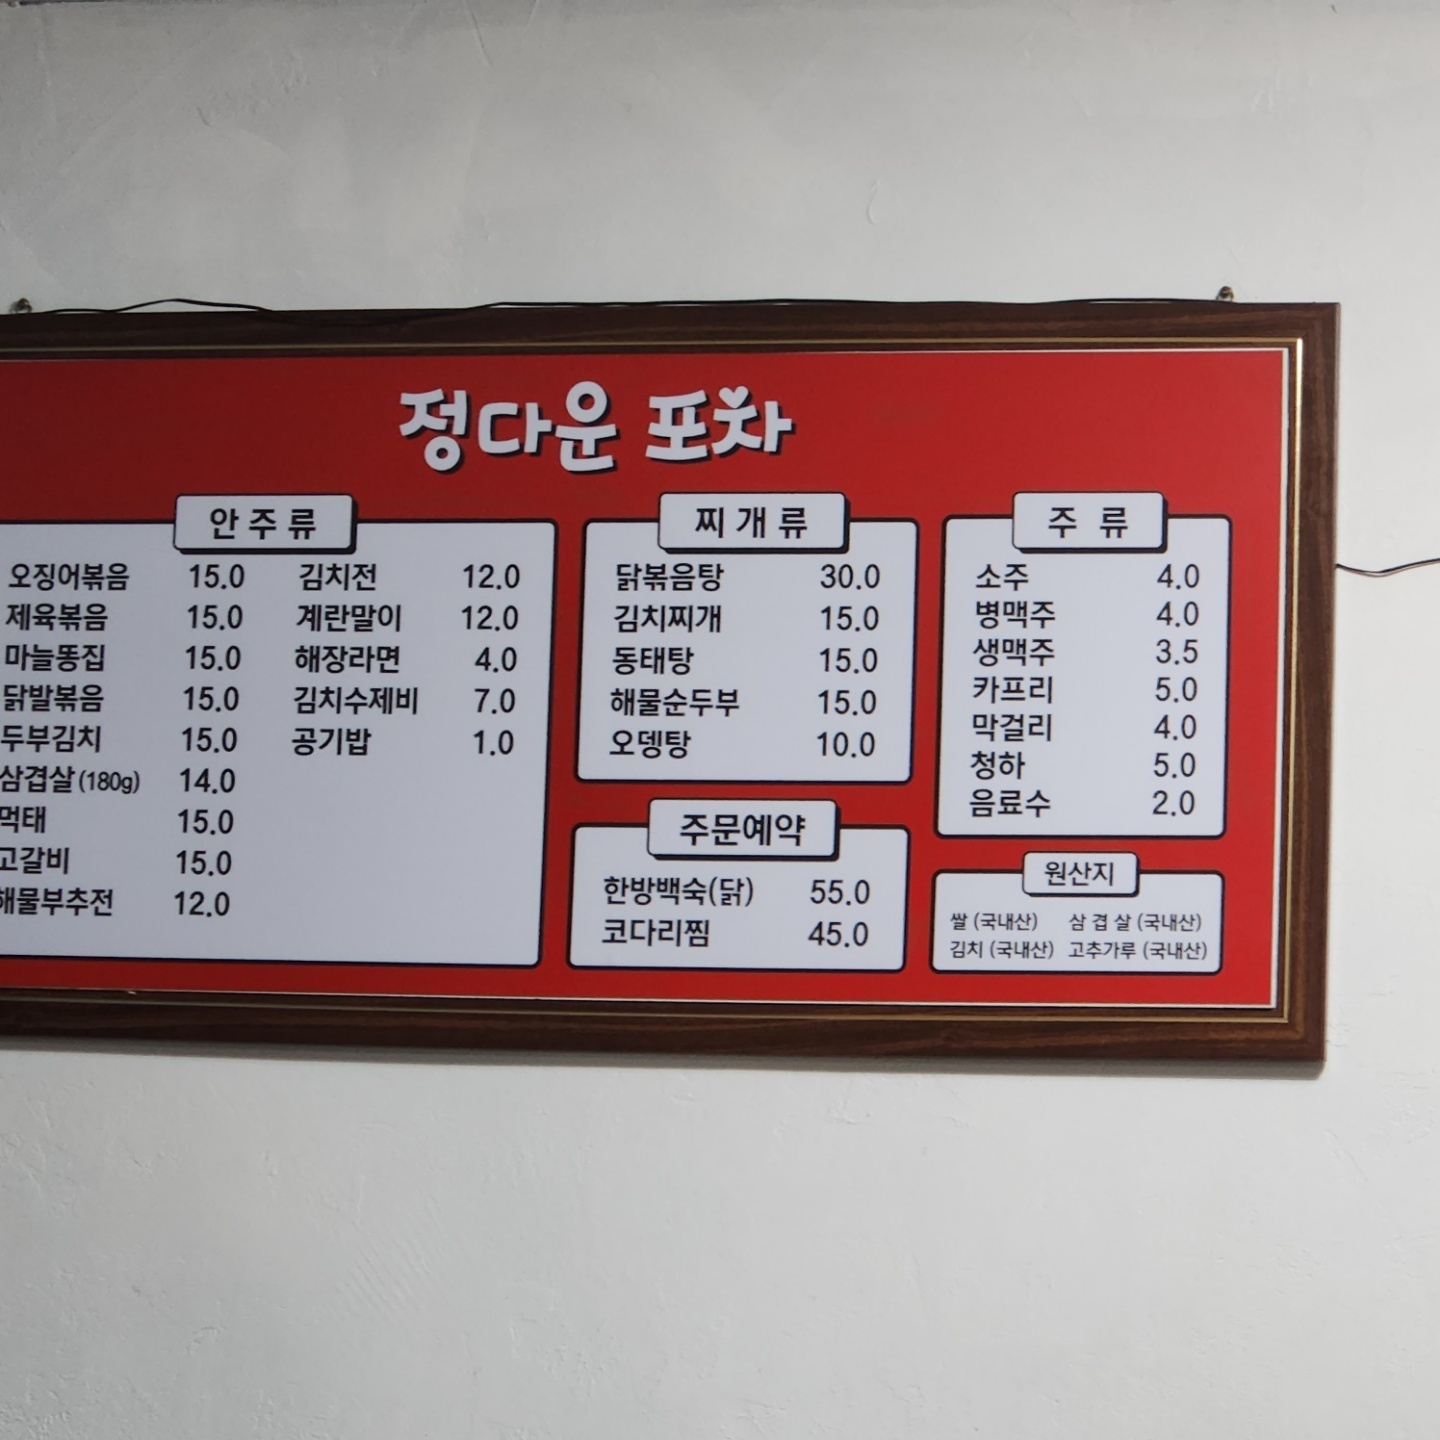 정다운 포차
안주류
오징어볶음 15.0 김치전 12.0
제육볶음 15.0 계란말이 12.0
마늘똥집 15.0 해장라면 4.0
닭발볶음 15.0 김치수제비 7.0
두부김치 15.0 공기밥 1.0
삼겹살(180g) 14.0
먹태 15.0
고갈비 15.0
해물부추전 12.0
찌개류
닭볶음탕 30.0
김치찌개 15.0
동태탕 15.0
해물순두부 15.0
오뎅탕 10.0
주문예약
한방백숙(닭) 55.0
코다리찜 45.0
주 류
소주 4.0
병맥주 4.0
생맥주 3.5
카프리 5.0
막걸리 4.0
청하 5.0
음료수 2.0
원산지
쌀 (국내산) 삼 겹 살 (국내산)
김치 (국내산) 고추가루 (국내산)